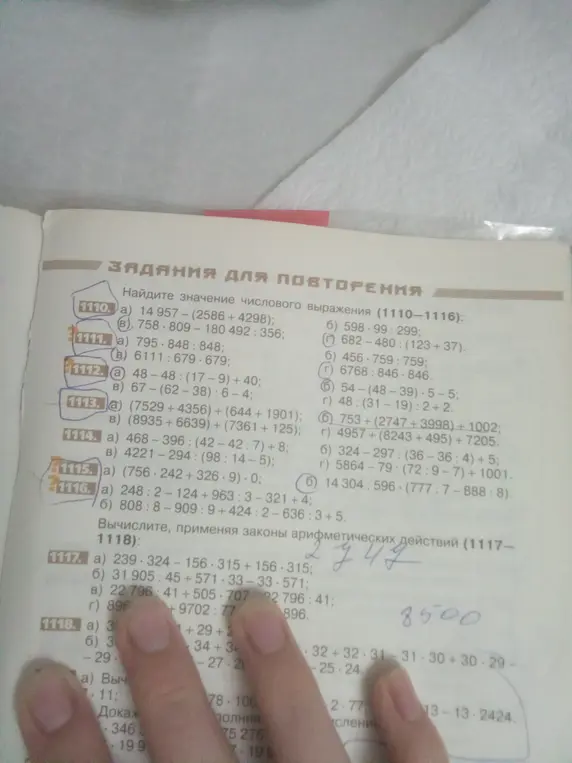 ЗАДАНИЯ ДЛЯ ПОВТОРЕНИЯ
Найдите значение числового выражения (1110—1116):
1110. а) 14 957 − (2586 + 4298); б) 598 · 99 : 299;
в) 758 · 809 − 180 492 : 356; г) 682 − 480 : (123 + 37).
1111. а) 795 · 848 : 848; б) 456 · 759 : 759;
в) 6111 : 679 · 679; г) 6768 : 846 · 846.
1112. а) 48 − 48 : (17 − 9) + 40; б) 54 − (48 − 39) · 5 − 5;
в) 67 − (62 − 38) : 6 − 4; г) 48 : (31 − 19) : 2 + 2.
1113. а) (7529 + 4356) + (644 + 1901); б) 753 + (2747 + 3998) + 1002;
в) (8935 + 6639) + (7361 + 125); г) 4957 + (8243 + 495) + 7205.
1114. а) 468 − 396 : (42 − 42 : 7) + 8; б) 324 − 297 : (36 − 36 : 4) + 5;
в) 4221 − 294 : (98 : 14 − 5); г) 5864 − 79 · (72 : 9 − 7) + 1001.
1115. а) (756 · 242 + 326 · 9) · 0; б) 14 304 : 596 · (777 : 7 − 888 : 8)
1116. а) 248 : 2 − 124 + 963 : 3 − 321 + 4;
б) 808 : 8 − 909 : 9 + 424 : 2 − 636 : 3 + 5.
Вычислите, применяя законы арифметических действий (1117—
1118):
2747
1117. а) 239 · 324 − 156 · 315 + 156 · 315;
б) 31 905 : 45 + 571 · 33 − 33 · 571;
в) 22 796 : 41 + 505 · 707 22 796 : 41;
г) + 9702 : 77 896.
8500
1118. а) + 29 +
б) 34 + 32 + 32 · 31 − 31 · 30 + 30 · 29 −
− 29 − 27 · 25 · 24.
а)
· 11; 78 · 2 · 77 13 − 13 · 2424.